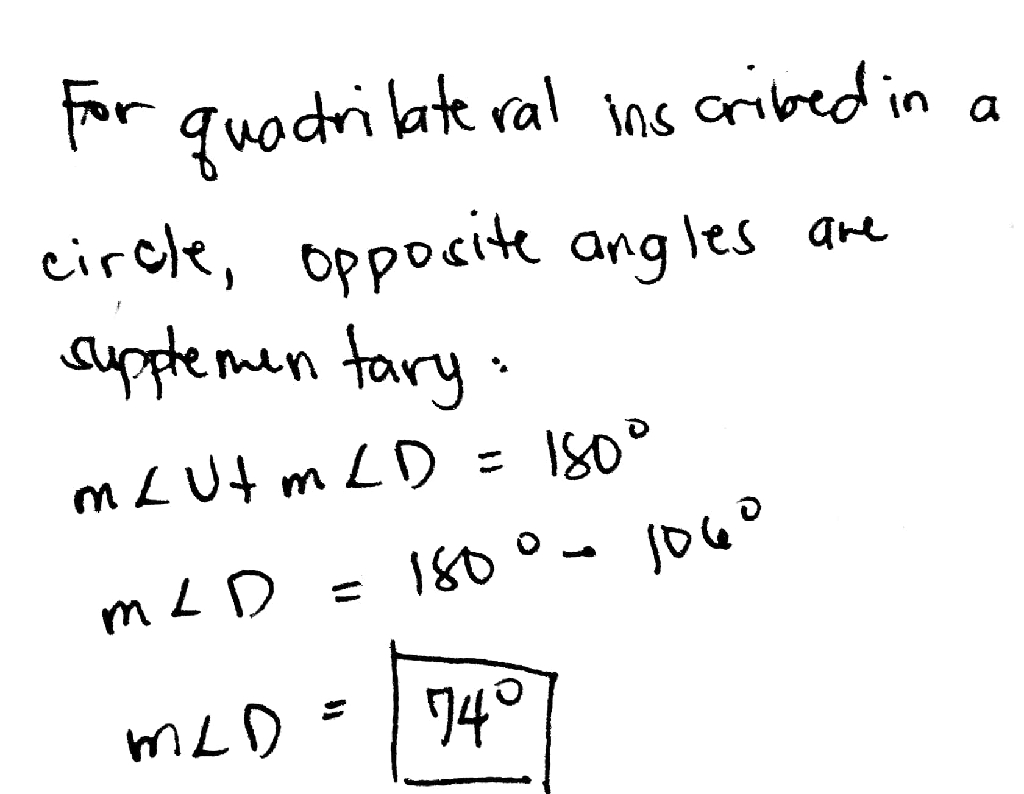 For quadrilateral inscribed in a
circle, opposite angles are
supplementary:
m∠U + m∠D = 180°
m∠D = 180° - 106°
m∠D = 74°